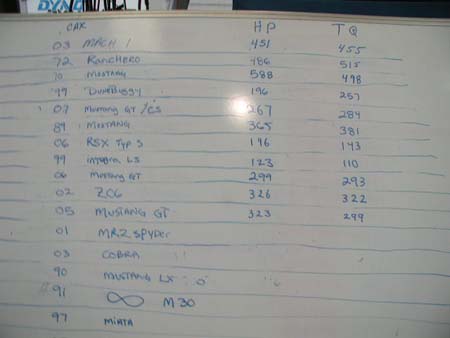 DYNO
CAR HP TQ
03 MACH 1 451 455
72 RANCHERO 486 515
10 MUSTANG 588 498
99 DuneBuggy 196 257
07 Mustang GT/CS 267 284
89 MUSTANG 365 381
06 RSX Typ S 196 143
99 integra LS 123 110
06 Mustang GT 299 293
02 Z06 326 322
05 MUSTANG GT 323 299
01 MR2 SPYDER
03 COBRA
90 MUSTANG LX
91 ∞ M30
97 MIATA